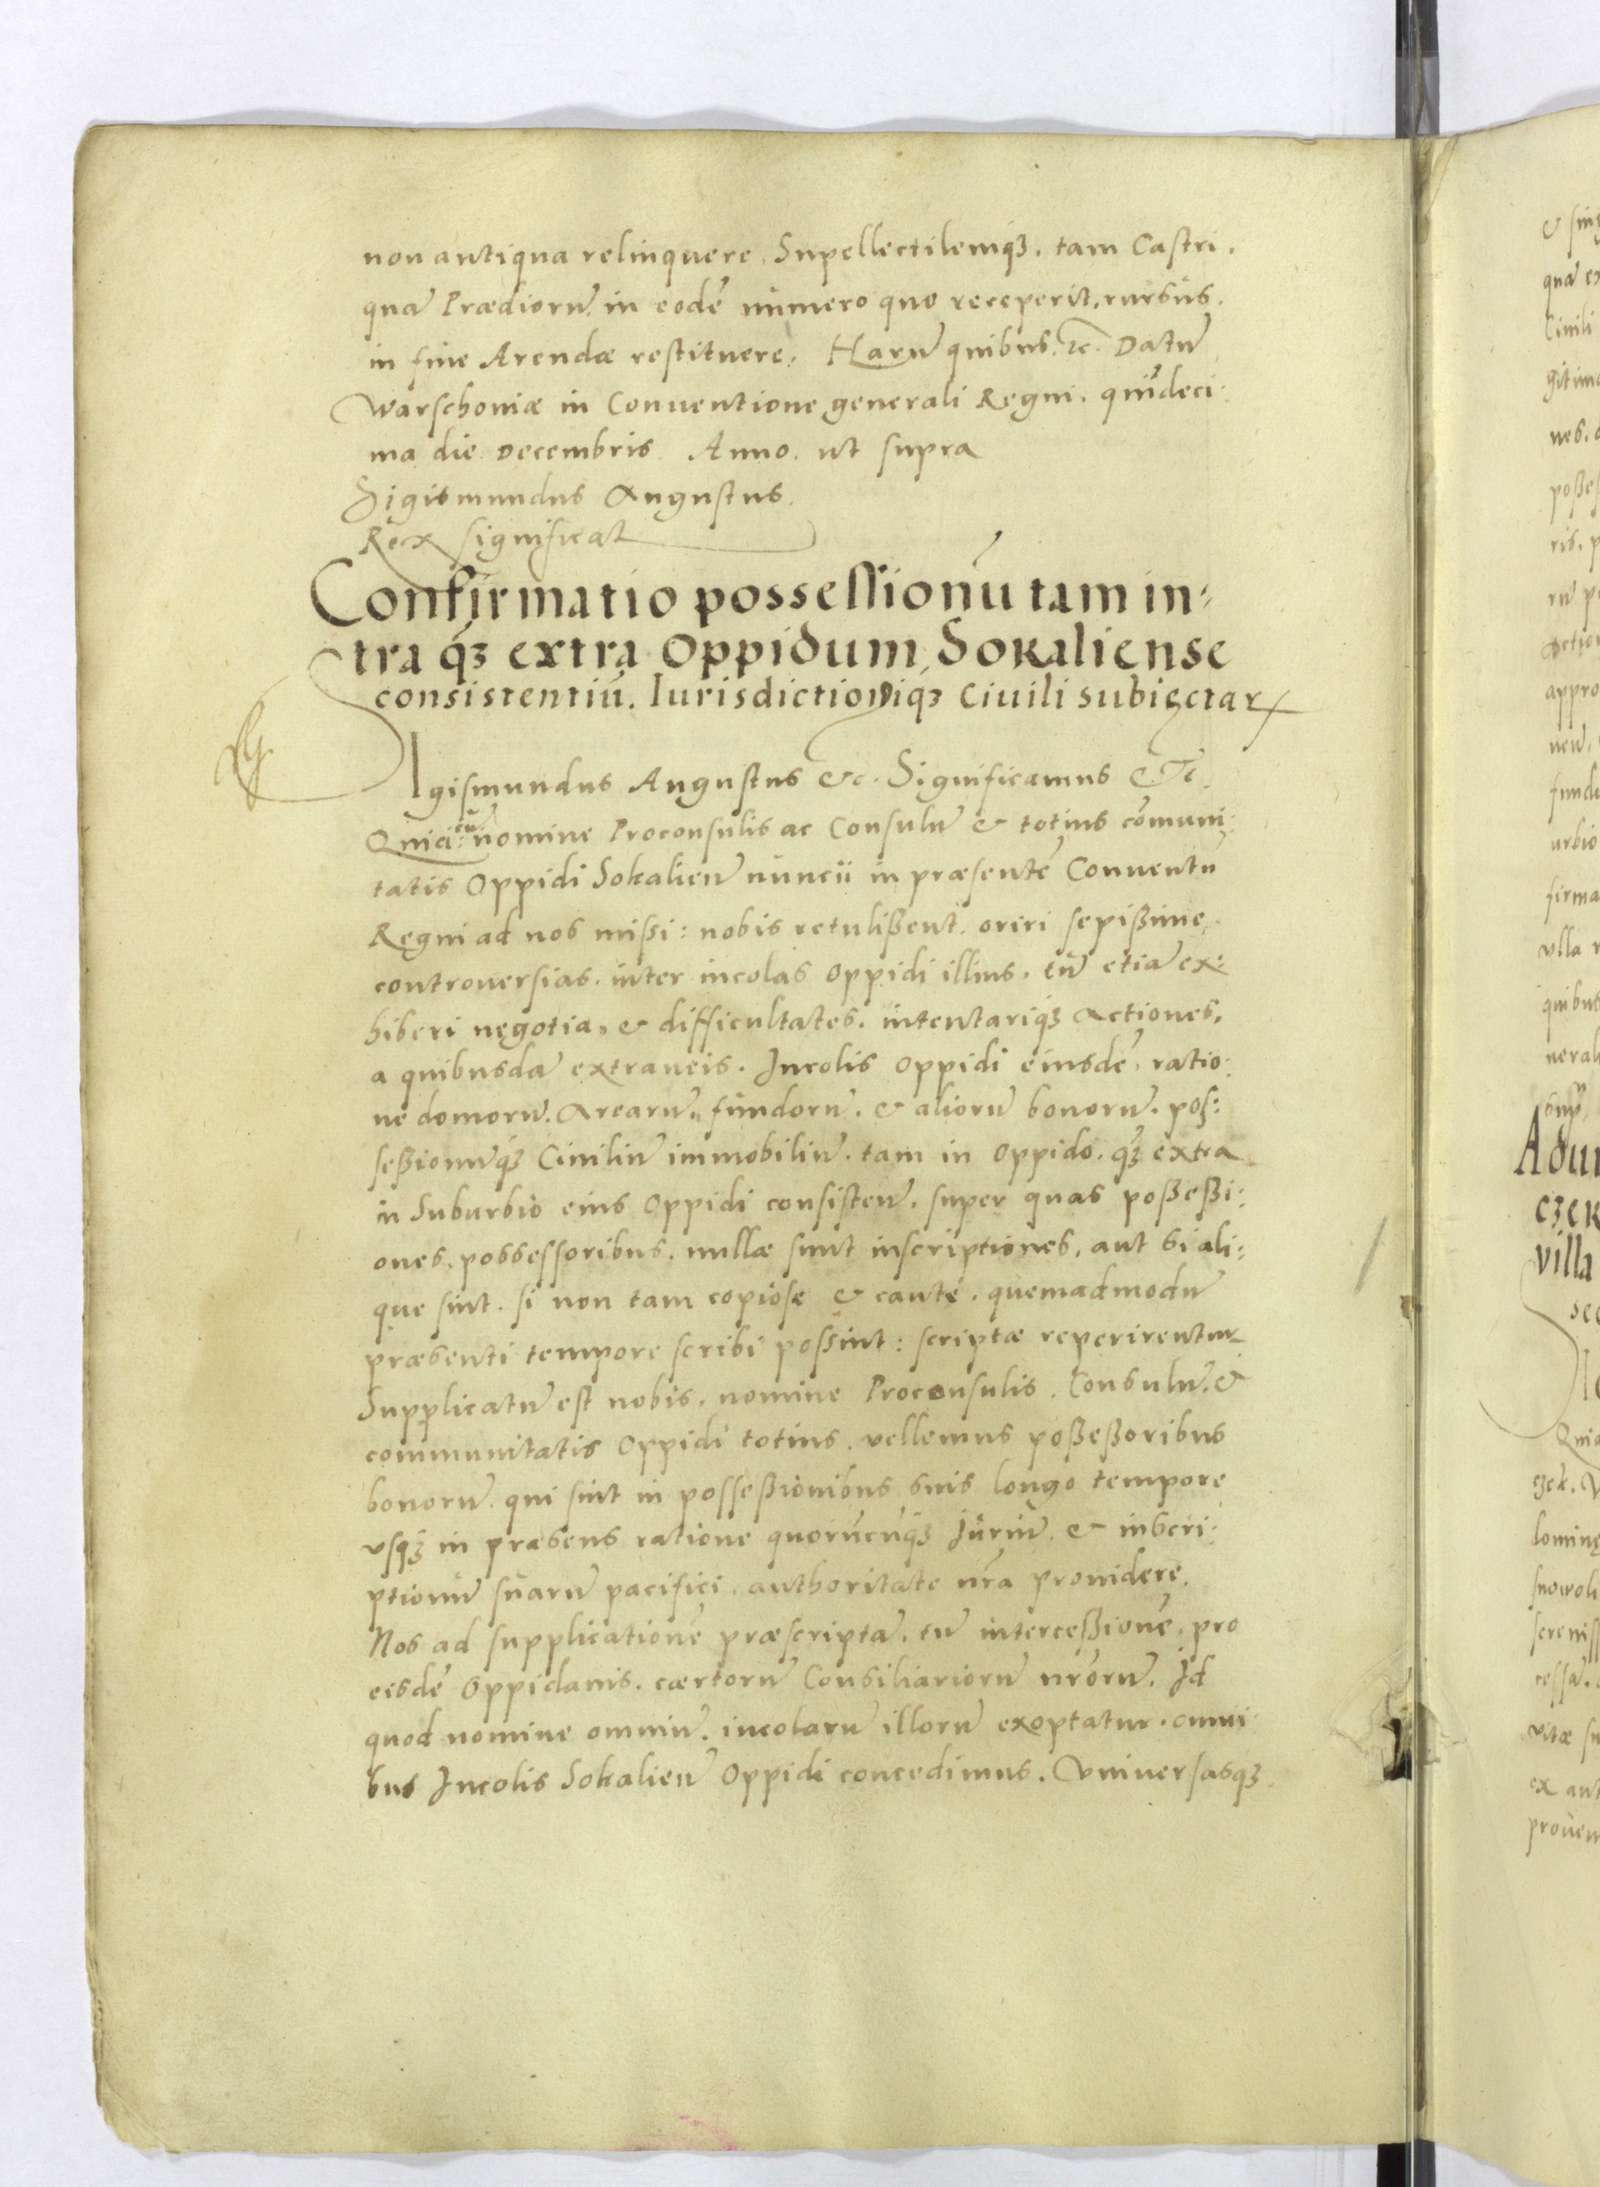 non antiqua relinquere. Supellectilemq₃. tam Castri.
quā Prædiorū. in eodē numero quo receperit. rursus.
in fine Arendæ restituere. Harū quibus. &c. Datū
Warschoniæ in Conuentione generali Regni. quīdeci:
ma die Decembris. Anno. ut supra
Sigismundus Augustus.
Rex significat
Confirmatio possessionū tam in-
tra q₃ extra Oppidum Sokaliense
consistentiū. Iurisdictioniq₃ Ciuili subiectar
Sigismundus Augustus &c. Significamus &c
Quia cū nomine Proconsulis ac Consulū & totius cōmuni:
tatis Oppidi Sokalień nuncii in præsentē Conuentū
Regni ad nos missi: nobis retulißent. oriri sepißime
controuersias. inter incolas oppidi illius. tū etiā ex:
hiberi negotia, & difficultates. intentariq₃ actiones,
a quibusdā extraneis. Incolis Oppidi eiusdē. ratio:
ne domorū. Arearū, fundorū. & aliorū bonorū. pos:
seßionūq₃ Ciuiliū immobiliū. tam in Oppido. q₃ extra
in Suburbio eius Oppidi consisteñ. super quas poßeßi:
ones. possessoribus. nullæ sunt inscriptiones, aut si ali:
que sint. si non tam copiose & caute. quemadmodū
præsenti tempore scribi possint: scriptæ reperirentur
Supplicatū est nobis. nomine Proconsulis. Consulū. &
communitatis Oppidi totius. vellemus poßeßoribus
bonorū. qui sint in posseßionibus suis longo tempore
vsq₃ in præsens ratione quorūcūq₃ Iuriū. & inscri:
ptionū suarū pacifici. authoritate nrā prouidere.
Nos ad supplicationē præscriptā. tū interceßionē. pro
eisdē Oppidanis. cærtorū Consiliariorū nrōrū. Id
quod nomine omniū. incolarū illorū exoptatur. omni
bus Incolis Sokalień Oppidi concedimus. Vniuersasq₃